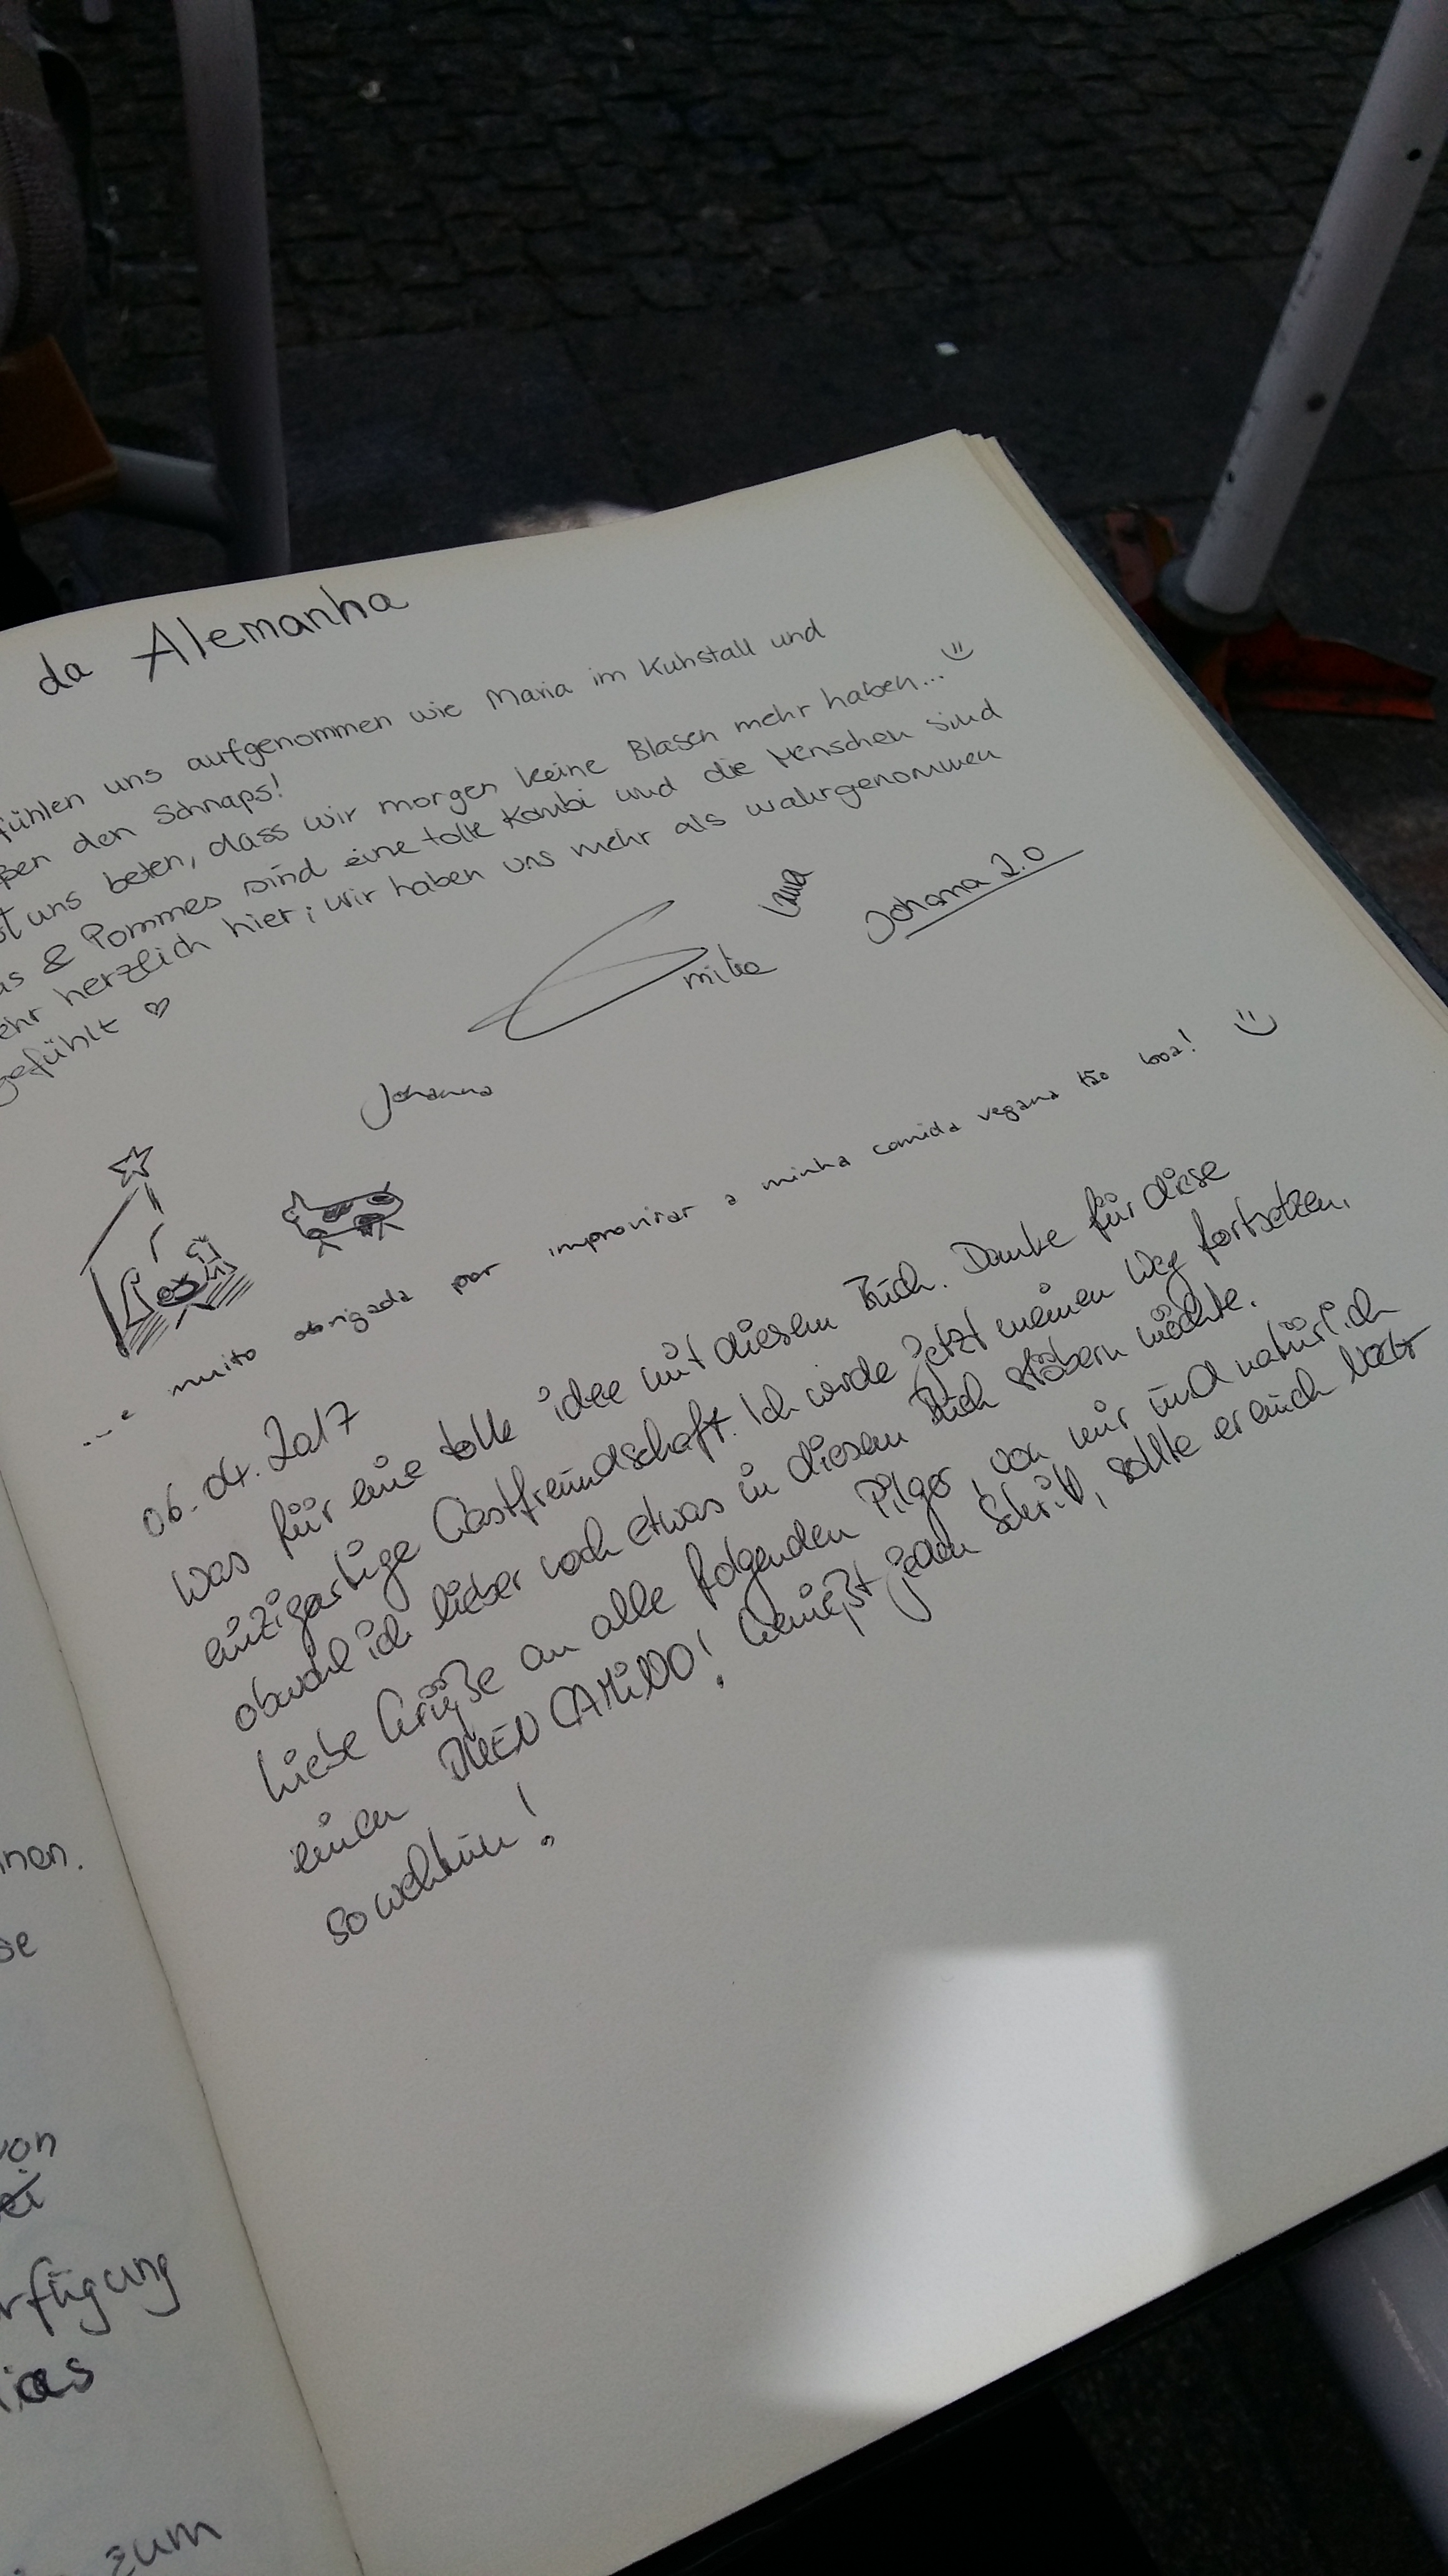 da Alemanha
fühlen uns aufgenommen wie Maria im Kuhstall und
ßen den Schnaps!
t uns beten, dass wir morgen keine Blasen mehr haben...
as & Pommes sind eine tolle Kombi und die Menschen sind
ehr herzlich hier; wir haben uns mehr als wahrgenommen
gefühlt ♡
Lana
Johanna 2.0
Johanna
...e muito obrigada por improvisar a minha comida vegana tão boa!
06.04.2017
Was für eine tolle idee mit diesem Buch. Danke für diese
einzigartige Gastfreundschaft. Ich werde jetzt meinen Weg fortsetzen,
obwohl ich lieber noch etwas in diesem Buch stöbern möchte.
Liebe Grüße an alle folgenden Pilger, von mir und natürlich
einen BUEN CAMiNO! Genießt jeden Schritt, sollte er auch
so wehtun!
nen.
se
von
ei
rfügung
ias
zum